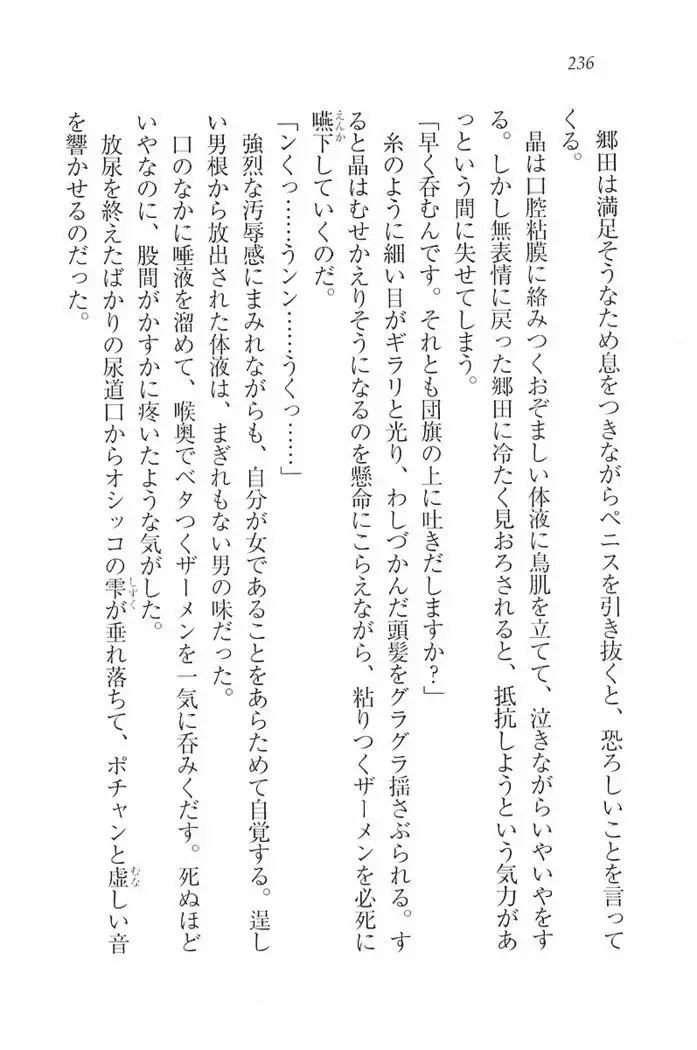 236
郷田は満足そうなため息をつきながらペニスを引き抜くと、恐ろしいことを言って
くる。
晶は口腔粘膜に絡みつくおぞましい体液に鳥肌を立てて、泣きながらいやいやをす
る。しかし無表情に戻った郷田に冷たく見おろされると、抵抗しようという気力があ
っという間に失せてしまう。
「早く呑むんです。それとも団旗の上に吐きだしますか？」
糸のように細い目がギラリと光り、わしづかんだ頭髪をグラグラ揺さぶられる。す
ると晶はむせかえりそうになるのを懸命にこらえながら、粘りつくザーメンを必死に
嚥下えんかしていくのだ。
「ンくっ……うンン……うくっ……」
強烈な汚辱感にまみれながらも、自分が女であることをあらためて自覚する。逞し
い男根から放出された体液は、まぎれもない男の味だった。
口のなかに唾液を溜めて、喉奥でベタつくザーメンを一気に呑みくだす。死ぬほど
いやなのに、股間がかすかに疼いたような気がした。
放尿を終えたばかりの尿道口からオシッコの雫しずくが垂れ落ちて、ポチャンと虚むなしい音
を響かせるのだった。